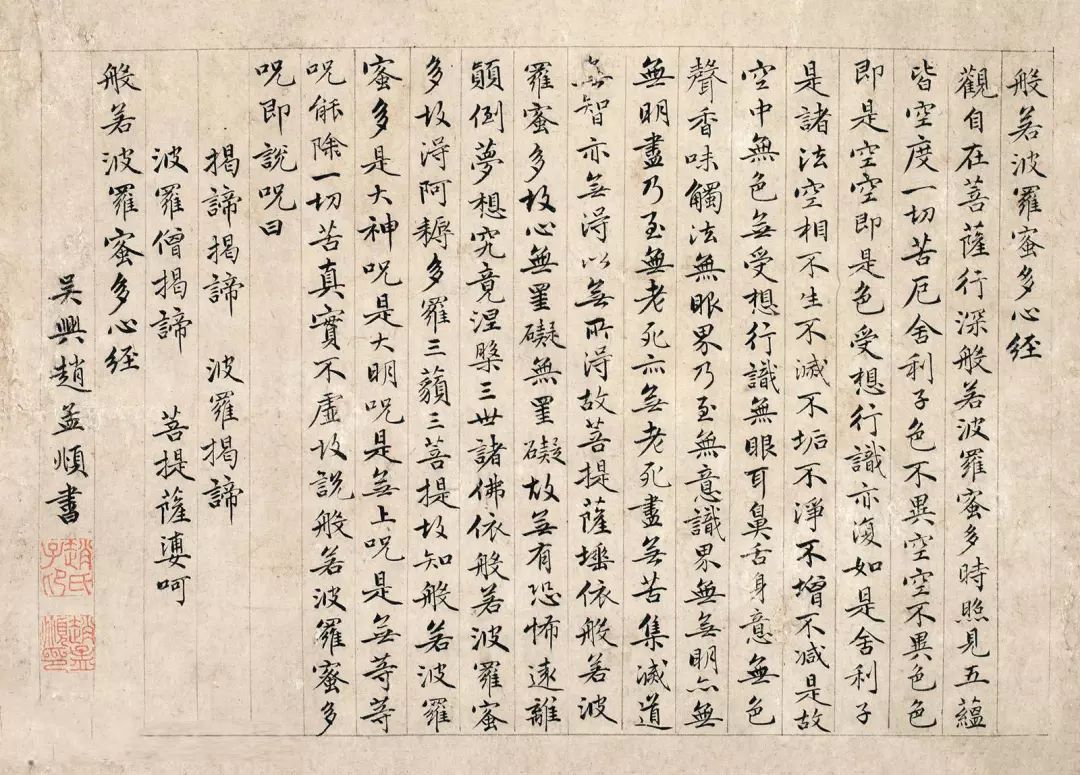 般若波羅蜜多心經
觀自在菩薩行深般若波羅蜜多時照見五蘊
皆空度一切苦厄舍利子色不異空空不異色色
即是空空即是色受想行識亦復如是舍利子
是諸法空相不生不滅不垢不淨不增不減是故
空中無色無受想行識無眼耳鼻舌身意無色
聲香味觸法無眼界乃至無意識界無無明亦無
無明盡乃至無老死亦無老死盡無苦集滅道
無智亦無得以無所得故菩提薩埵依般若波
羅蜜多故心無罣礙無罣礙故無有恐怖遠離
顛倒夢想究竟涅槃三世諸佛依般若波羅蜜
多故得阿耨多羅三藐三菩提故知般若波羅
蜜多是大神呪是大明呪是無上呪是無等等
呪能除一切苦真實不虛故說般若波羅蜜多
呪即說呪曰
揭諦揭諦 波羅揭諦
波羅僧揭諦 菩提薩婆呵
般若波羅蜜多心經
吳興趙孟頫書
趙氏子昂
趙孟頫印